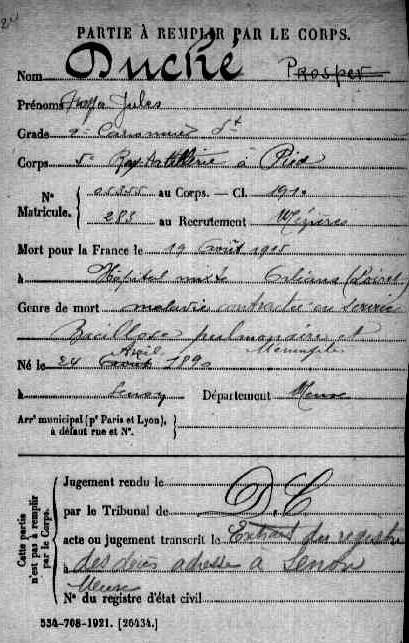 PARTIE À REMPLIR PAR LE CORPS.
Nom Duché Prosper
Prénoms Jules
Grade 2e Canonnier St
Corps 5e Rég Artillerie à Pied
Nº Matricule. 05355 au Corps. — Cl. 1910
283 au Recrutement Mézières
Mort pour la France le 19 Août 1915
à Hôpital mixte Orléans (Loiret)
Genre de mort maladie contractée en service
Bacillose pulmonaire et
Méningite
Né le 24 Avril août 1890
à Senon Département Meuse
Arrt municipal (pr Paris et Lyon),
à défaut rue et Nº.
Cette partie n'est pas à remplir par le Corps.
Jugement rendu le
par le Tribunal de D.C
acte ou jugement transcrit le Extrait des registres
des décès adressé à Senon
Meuse
Nº du registre d'état civil
534-708-1921. [26434.]